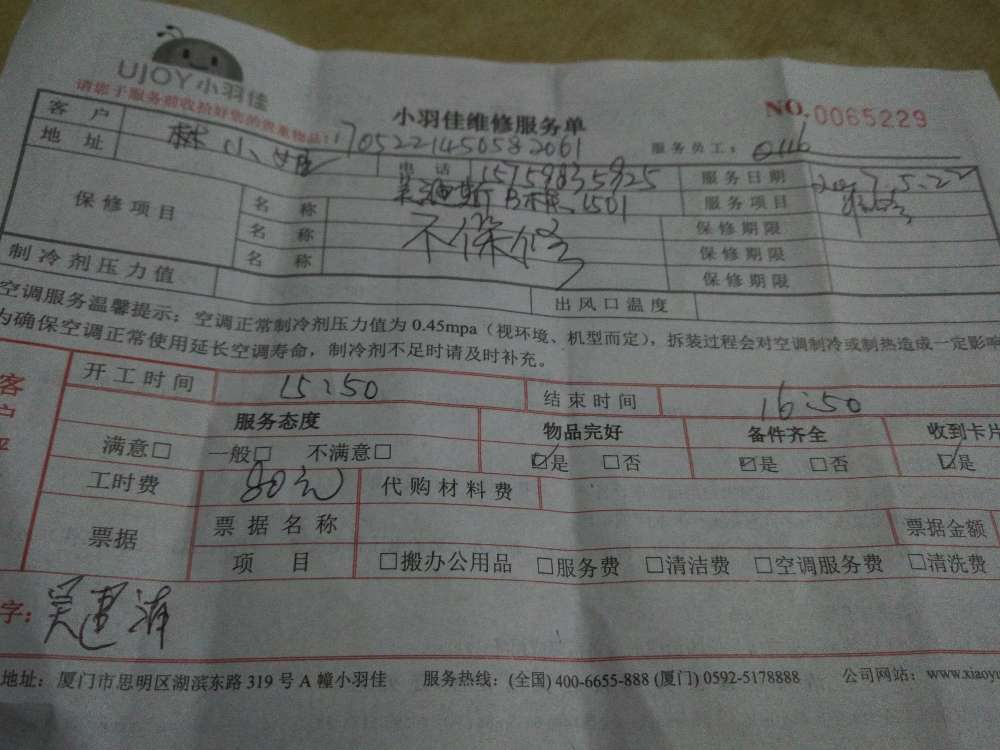 UJOY小羽佳
请您于服务前收拾好您的贵重物品！
小羽佳维修服务单
NO.0065229
1705221450582061
服务员工：0116
客户 林小姐 电话 15759835925 服务日期 2017.5.22
地址 B栋1501 服务项目
保修项目 名称 不保修 保修期限
名称 保修期限
名称 保修期限
制冷剂压力值 出风口温度
空调服务温馨提示：空调正常制冷剂压力值为 0.45mpa（视环境、机型而定），拆装过程会对空调制冷或制热造成一定影响
为确保空调正常使用延长空调寿命，制冷剂不足时请及时补充。
开工时间 15:50 结束时间 16:50
服务态度 物品完好 备件齐全 收到卡片
满意□ 一般□ 不满意□ ☑是 □否 ☑是 □否 ☑是
工时费 80元 代购材料费
票据 票据名称 票据金额
项目 □搬办公用品 □服务费 □清洁费 □空调服务费 □清洗费
字：
地址：厦门市思明区湖滨东路 319 号 A 幢小羽佳 服务热线：(全国) 400-6655-888 (厦门) 0592-5178888 公司网站：www.xiaoyu